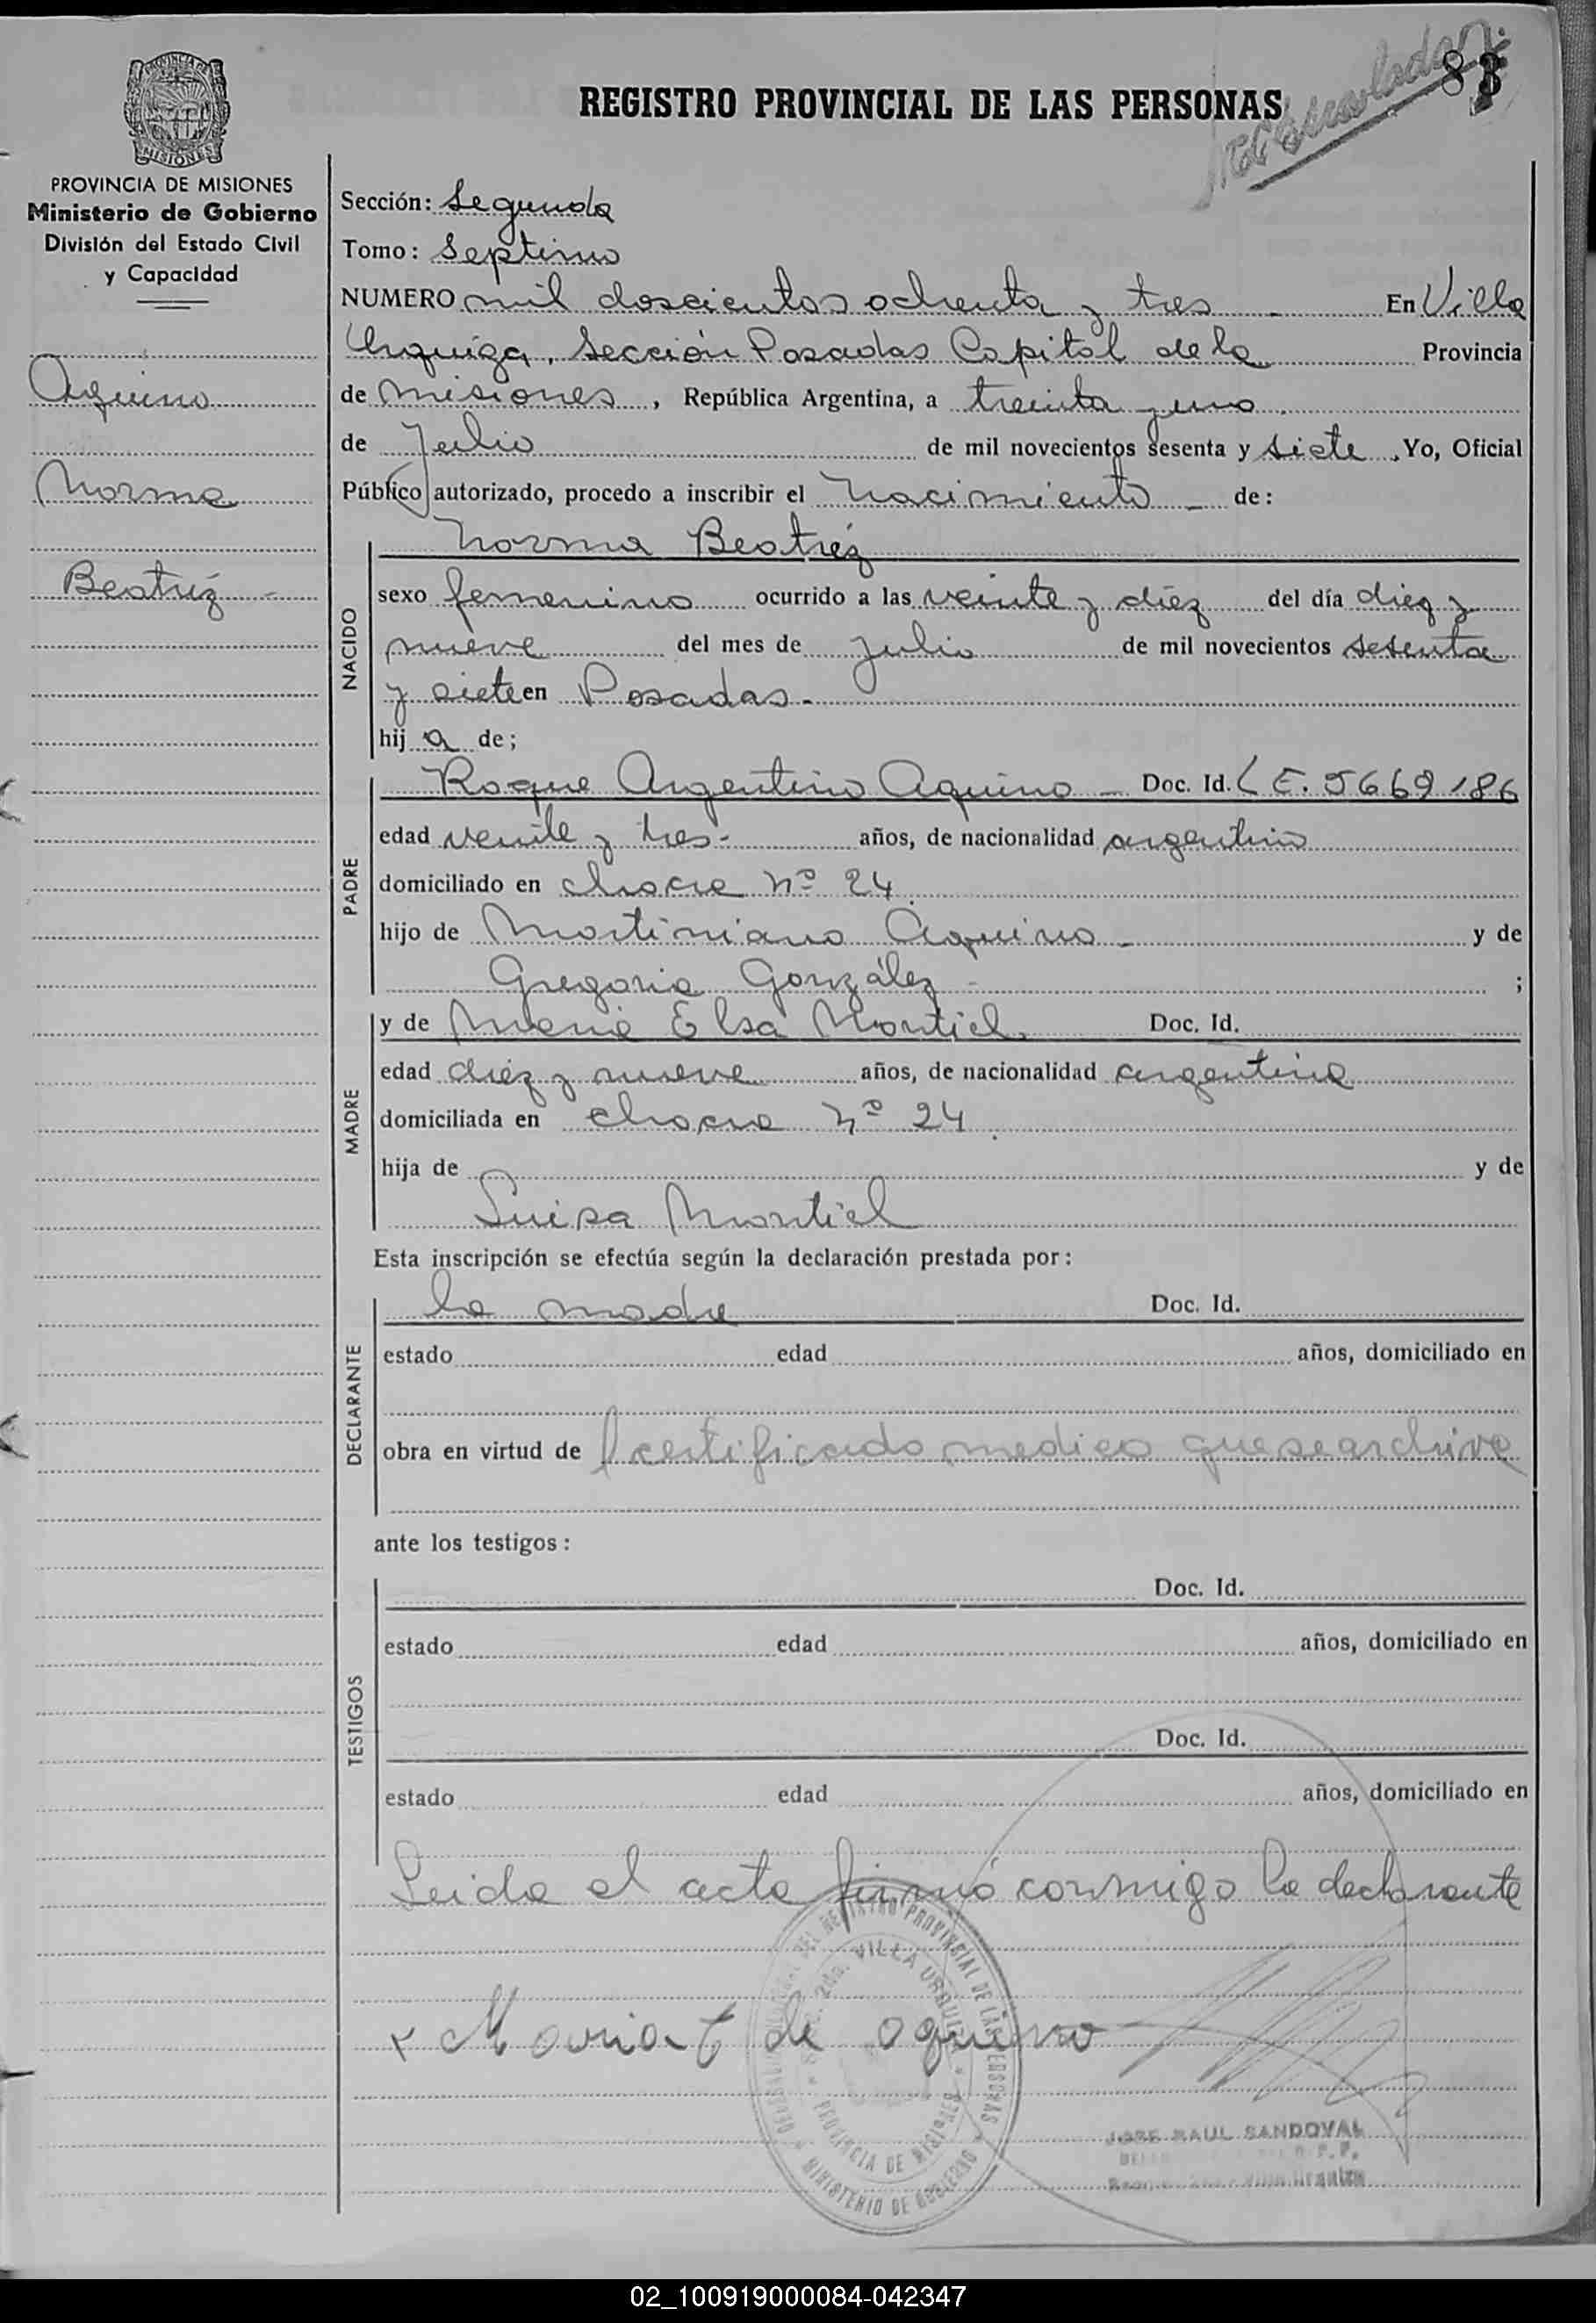 83
REGISTRO PROVINCIAL DE LAS PERSONAS
PROVINCIA DE
MISIONES
PROVINCIA DE MISIONES
Ministerio de Gobierno
División del Estado Civil
y Capacidad
Aquino
Norma
Beatríz -
Sección: Segunda
Tomo: Septimo
NUMERO mil doscientos ochenta y tres - En Villa
Urquiza, Sección Posadas Capital de la Provincia
de Misiones, República Argentina, a treinta y uno
de Julio de mil novecientos sesenta y siete. Yo, Oficial
Público autorizado, procedo a inscribir el nacimiento - de:
NACIDO
Norma Beatríz
sexo femenino ocurrido a las veinte y díez del día diez y
nueve del mes de julio de mil novecientos sesenta
y siete en Posadas.-
hij a de;
PADRE
Roque Argentino Aquino - Doc. Id. L E. 5669186
edad veinte y tres- años, de nacionalidad argentino
domiciliado en chacra Nº 24
hijo de Martiniano Aquino - y de
Gregoria González - ;
MADRE
y de María Elsa Montiel Doc. Id.
edad diéz y nueve años, de nacionalidad argentina
domiciliada en chacra Nº 24.
hija de y de
Luisa Montiel
Esta inscripción se efectúa según la declaración prestada por:
DECLARANTE
la madre Doc. Id.
estado edad años, domiciliado en
obra en virtud de certificado medico que se archiva
ante los testigos:
TESTIGOS
Doc. Id.
estado edad años, domiciliado en
Doc. Id.
estado edad años, domiciliado en
Leida el acta firmó conmigo la declarante
Maria E de aquino
DEL REGISTRO PROVINCIAL DE LAS PERSONAS
2da. VILLA URQUIZA
PROVINCIA DE MISIONES
MINISTERIO DE GOBIERNO
JOSE RAUL SANDOVAL
Villa Urquiza
02_100919000084-042347